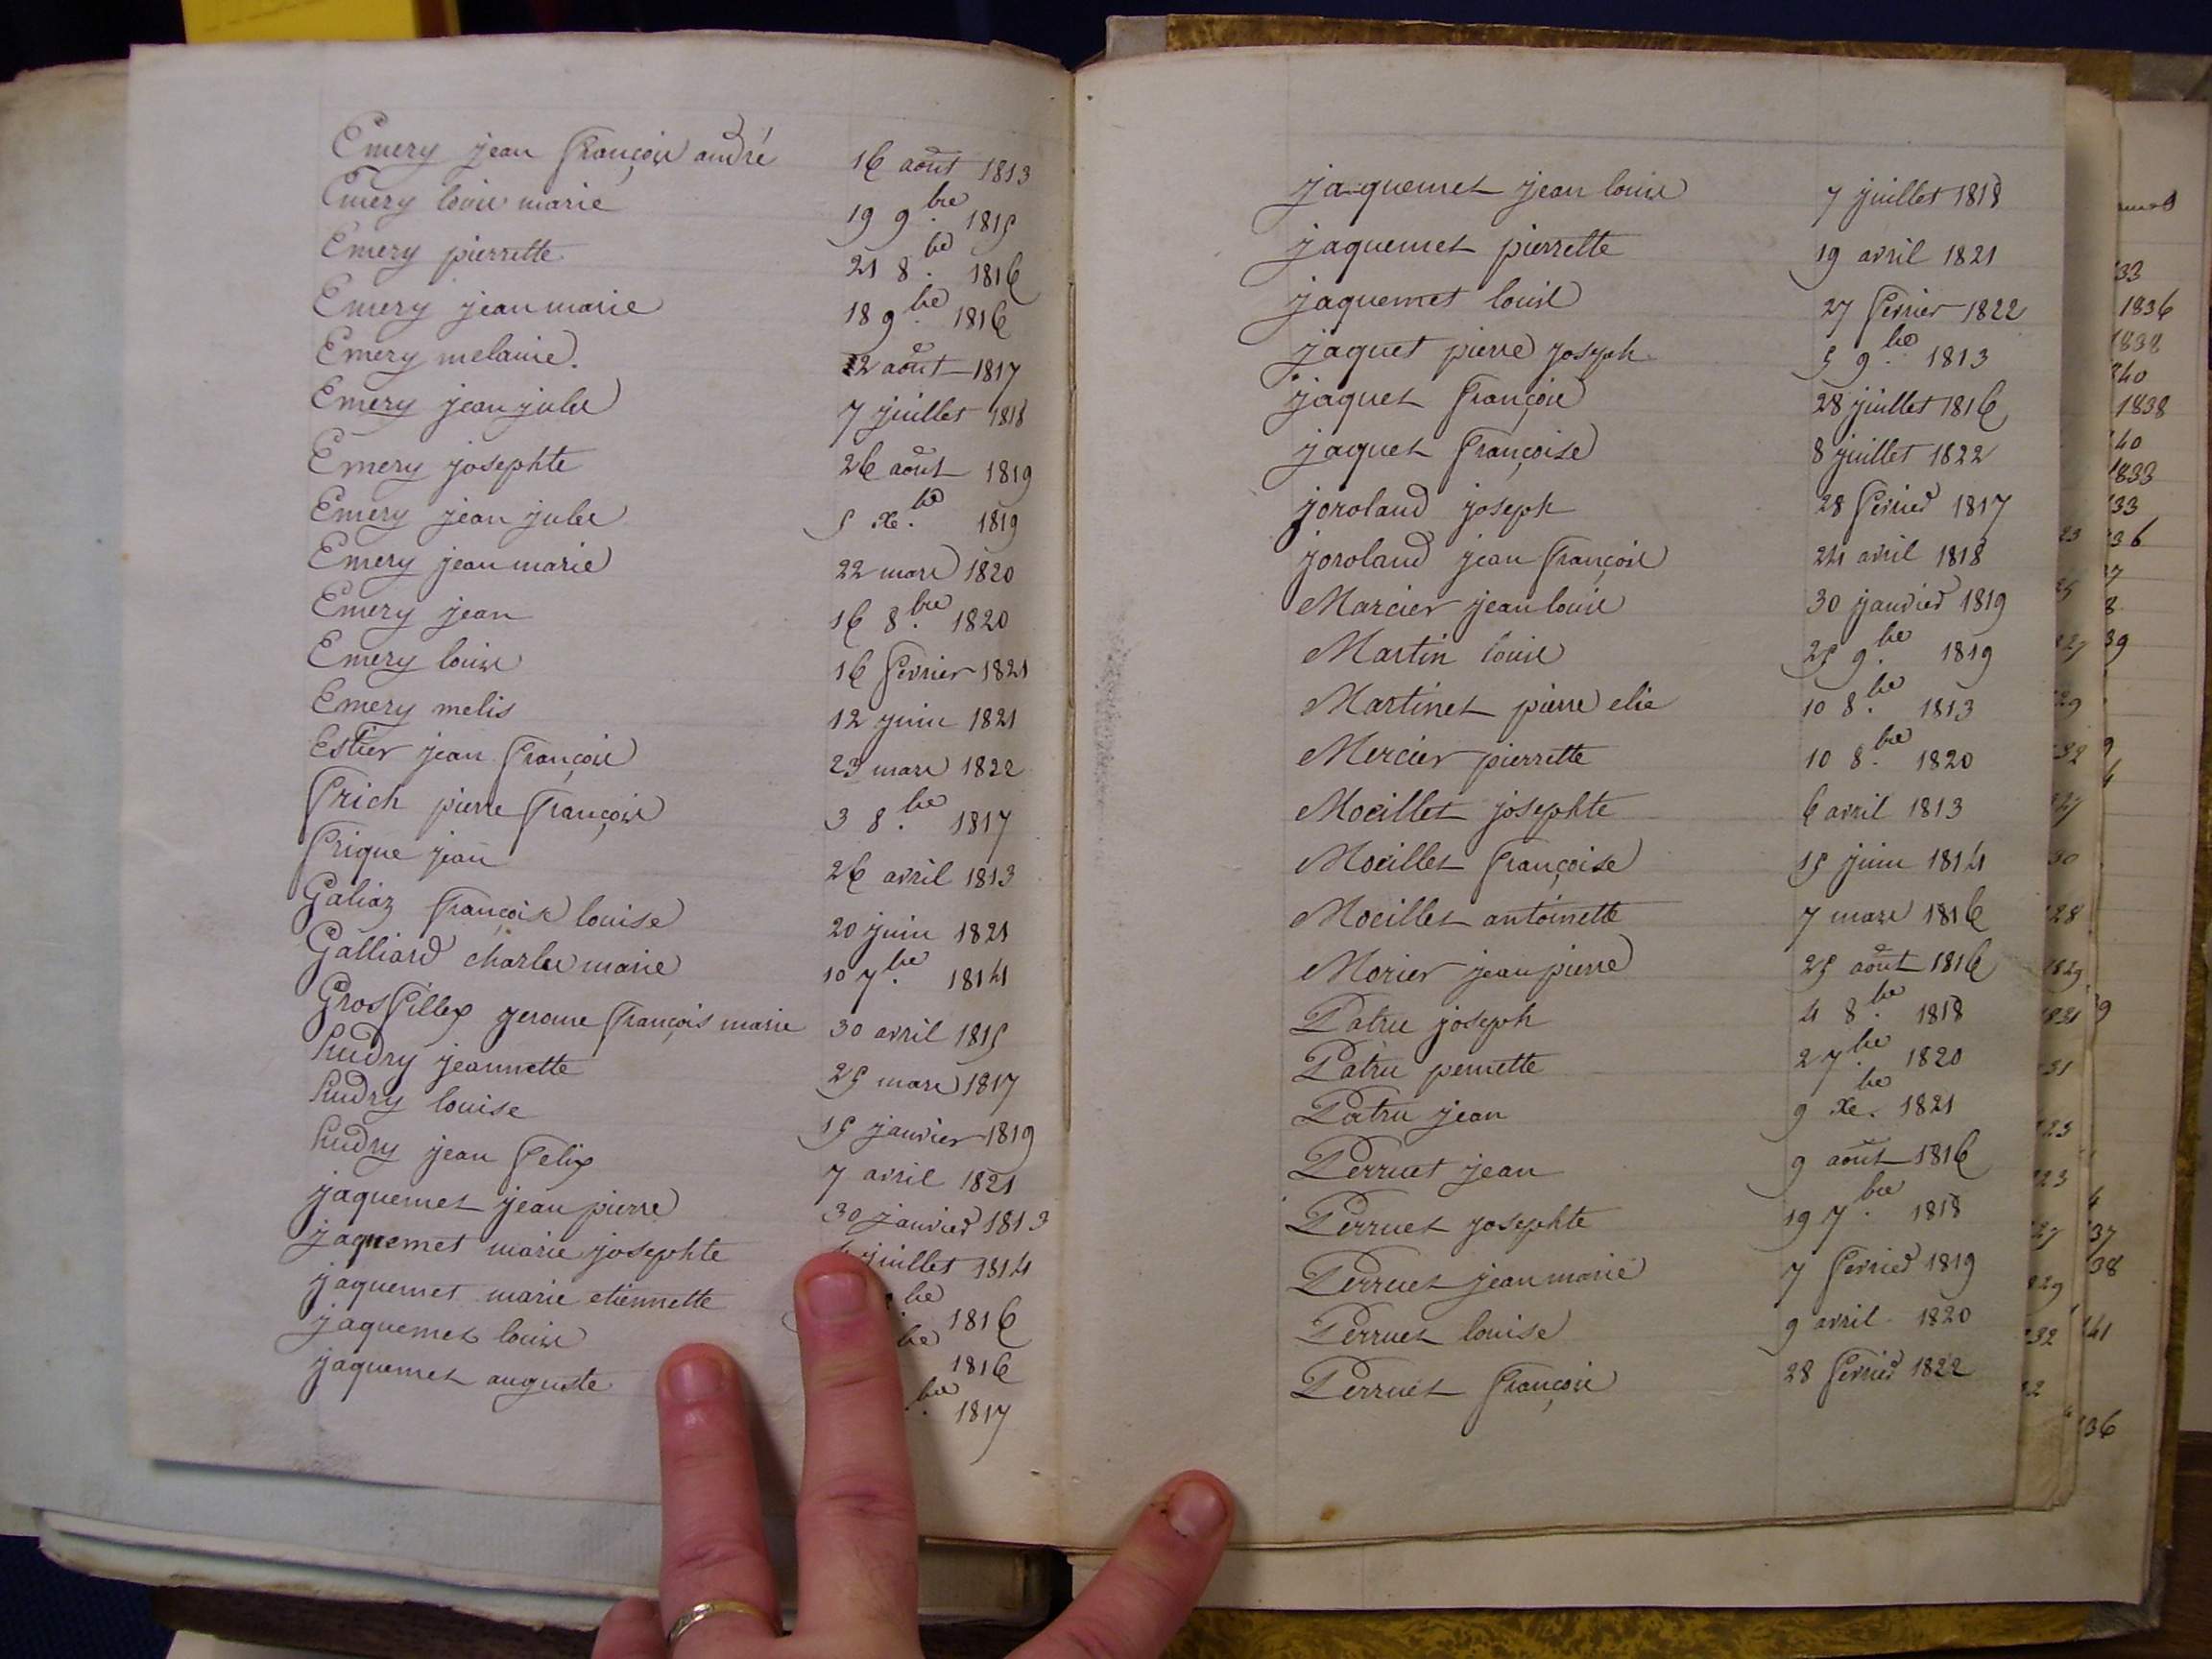 Emery jean françois andré 16 août 1813
Emery louis marie 19 9.bre 1815
Emery pierrette 21 8.bre 1816
Emery jean marie 18 9.bre 1816
Emery melanie. 12 août 1817
Emery jean jules 7 juillet 1818
Emery josephte 26 août 1819
Emery jean jules 5 xe.bre 1819
Emery jean marie 22 mars 1820
Emery jean 16 8.bre 1820
Emery louis 16 fevrier 1821
Emery melis 12 juin 1821
Estier jean françois 23 mars 1822
frich pierre françois 3 8.bre 1817
frique jean 26 avril 1813
Galiaz françois louise 20 juin 1821
Galliard charles marie 10 7.bre 1814
Grosfillex gerome françois marie 30 avril 1815
hudry jeannette 25 mars 1817
hudry louise 15 janvier 1819
hudry jean felix 7 avril 1821
jaquemet jean pierre 30 janvier 1813
jaquemet marie josephte juillet 1814
jaquemet marie etiennette bre 1816
jaquemet louis bre 1816
jaquemet auguste .bre 1817
jaquemet jean louis 7 juillet 1818
jaquemet pierrette 19 avril 1821
jaquemet louis 27 fevrier 1822
jaquet pierre joseph 5 9.bre 1813
jaquet françois 28 juillet 1816
jaquet françoise 8 juillet 1822
joroland joseph 28 fevrier 1817
joroland jean françois 24 avril 1818
Marcier jean louis 30 janvier 1819
Martin louis 25 9.bre 1819
Martinet pierre elie 10 8.bre 1813
Mercier pierrette 10 8.bre 1820
Moeillet josephte 6 avril 1813
Moeillet françoise 15 juin 1814
Moeillet antoinette 7 mars 1816
Morier jean pierre 25 août 1816
Patru joseph 4 8.bre 1818
Patru pernette 2 7.bre 1820
Patru jean 9 xe.bre 1821
Perruet jean 9 août 1816
Perruet josephte 19 7.bre 1818
Perruet jean marie 7 fevrier 1819
Perruet louise 9 avril 1820
Perruet françois 28 fevrier 1822
33
1836
1838
40
1838
40
1833
33
36